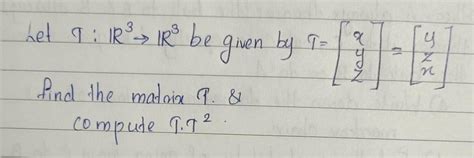 Let T : ℝ³ → ℝ³ be given by T = [x y z] = [y z x]
find the matrix T. &
compute T.T² .